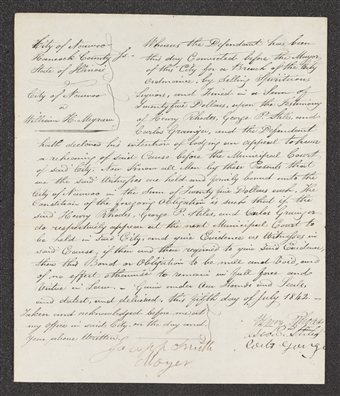 City of Nauvoo
Hancock County } ss.
State of Illinois
City of Nauvoo
vs
William H.
Whereas the Defendant has been
this day Convicted before the Mayor
of this City for a Breach of the City
Ordinance, by selling Spirituous
Liquors, and fined in a Sum of
Twentyfive Dollars, upon the Testimony
of Henry Rhodes, George P. Stiles, and
Carlos Granger, and the Defendant
hath declared his intention of lodging an appeal to have
a rehearing of said Cause before the Municipal Court
of said City. Now Know all Men by these Presents that
we the said Witnesses are held and firmly bound unto the
City of Nauvoo in the Sum of Twenty five Dollars each, The
Condition of the foregoing Obligation is such that if the
said Henry Rhodes, George P. Stiles, and Carlos Granger
do respectively appear at the next Municipal Court to
be held in said City, and give Evidence as Witnesses in
said Cause, if then and there required to give said Evidence
then this Bond or Obligation to be null and Void, and
of no effect, otherwise to remain in full force and
Virtue in Law. Given under Our Hands and Seals
and dated, and delivered, this fifth day of July 1842.
Taken and acknowledged before me, at
my Office in said City, on the day and
Year above Written.
Joseph Smith
Mayor
Henry
Geo. P. Stiles
Carlos Granger